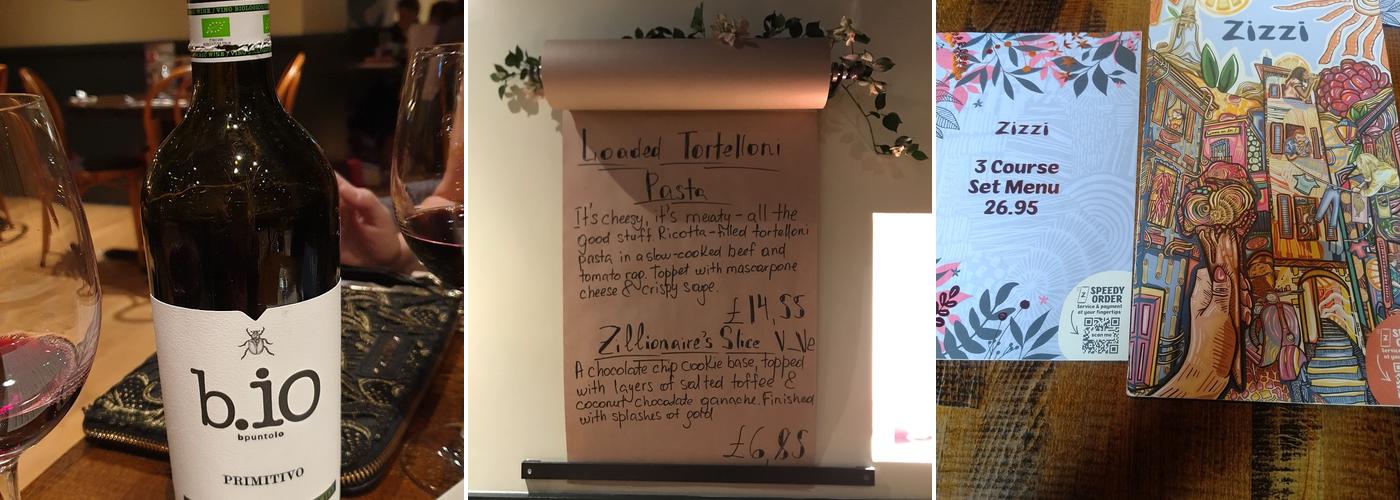 b.io
bpuntoio
PRIMITIVO
Loaded Tortelloni
Pasta
It's cheesy, it's meaty - all the
good stuff. Ricotta-filled tortelloni
pasta in a slow-cooked beef and
tomato rag. Toppet with mascarpone
cheese & crispy sage.
£14,55
Zillionaire's Slice V Ve
A chocolate chip cookie base, topped
with layers of salted toffee &
coconut chocolate ganache. Finished
with splashes of gold
£6,85
Zizzi
3 Course
Set Menu
26.95
SPEEDY
ORDER
Service & payment
at your fingertips
scan me
Zizzi